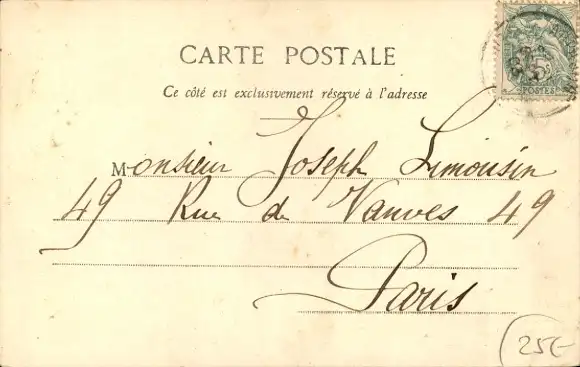 CARTE POSTALE
Ce côté est exclusivement réservé à l'adresse
5c
POSTES
Monsieur Joseph Limousin
49 Rue de Vanves 49
Paris
25€